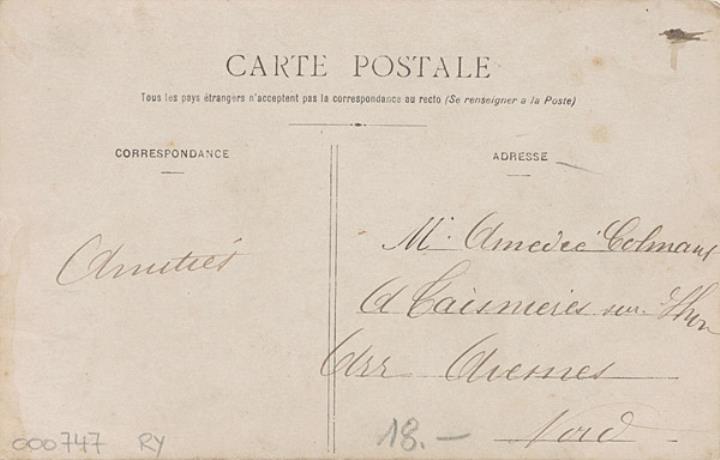 CARTE POSTALE
Tous les pays étrangers n'acceptent pas la correspondance au recto (Se renseigner a la Poste)
CORRESPONDANCE
ADRESSE
Amitiés
Mr. Amedée Colmant
A Taisnieres sur Thon
Arr Avesnes
Nord
000747 RY
18.-